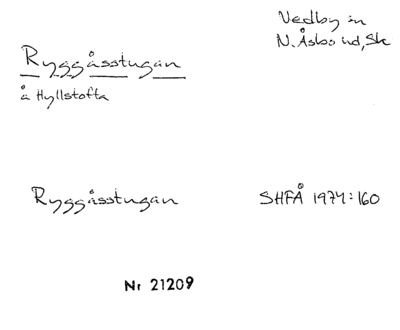 Ryggåsstugan
å Hyllstofta
Vedby sn
N. Åsbo hd, Sk
Ryggåsstugan
SHFÅ 1974:160
Nr 21209